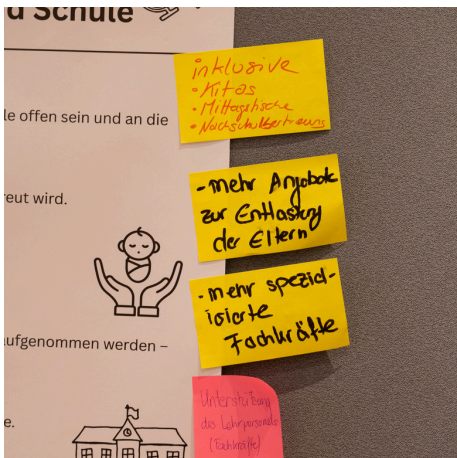 d Schule
le offen sein und an die
reut wird.
aufgenommen werden –
e.
inklusive
• Kitas
• Mittagstische
• Nachschulbetreuung
- mehr Angebote
zur Entlastung
der Eltern
- mehr spezial-
isierte
Fachkräfte
Unterstützung
des Lehrpersonals
(Fachkräfte)